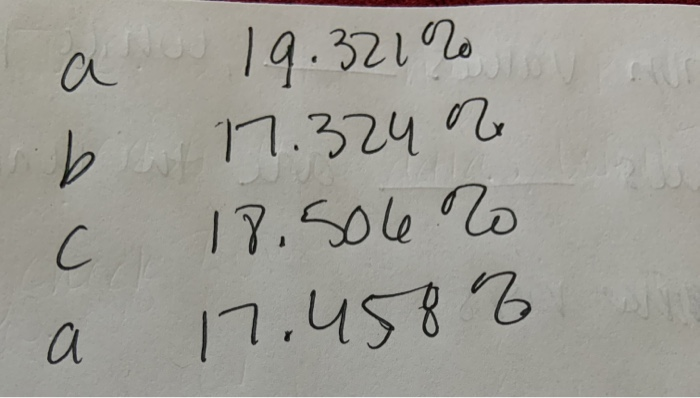 a 19.321%
b 17.324%
c 18.506%
a 17.458%